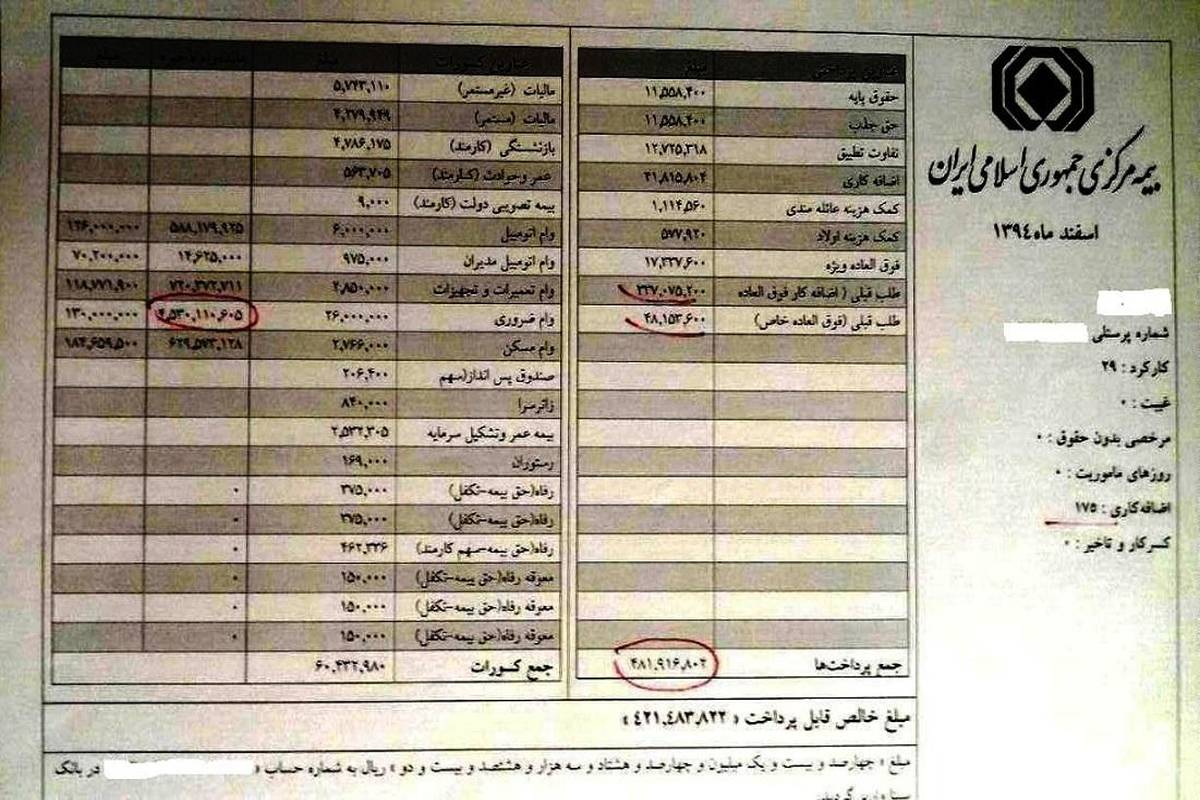 بیمه مرکزی جمهوری اسلامی ایران
اسفند ماه ۱۳۹٤
شماره پرسنلی
کارکرد : ۲۹
غیبت : ۰
مرخصی بدون حقوق : ۰
روزهای ماموریت : ۰
اضافه‌کاری : ۱۷۵
کسرکار و تاخیر : ۰
عناوین پرداختی مبلغ
حقوق پایه ۱۱,۵۵۸,۴۰۰
حق جذب ۱۱,۵۵۸,۴۰۰
تفاوت تطبیق ۱۲,۷۲۵,۳۱۸
اضافه کاری ۳۱,۸۱۵,۸۰۴
کمک هزینه عائله مندی ۱,۱۱۴,۵۶۰
کمک هزینه اولاد ۵۷۷,۹۲۰
فوق العاده ویژه ۱۷,۳۳۷,۶۰۰
طلب قبلی ( اضافه کار فوق العاده ۳۴۷,۰۷۵,۲۰۰
طلب قبلی (فوق العاده خاص) ۴۸,۱۵۳,۶۰۰
جمع پرداخت‌ها ۴۸۱,۹۱۶,۸۰۲
عناوین کسورات مبلغ
مالیات (غیرمستمر) ۵,۷۴۳,۱۱۰
مالیات (مستمر) ۴,۲۷۹,۹۴۹
بازنشستگی (کارمند) ۴,۷۸۶,۱۷۵
عمر وحوادث (کارمند) ۵۶۳,۷۰۵
بیمه تصویبی دولت (کارمند) ۹,۰۰۰
وام اتومبیل ۶,۰۰۰,۰۰۰ ۵۸۸,۱۷۹,۹۲۵ ۱۲۶,۰۰۰,۰۰۰
وام اتومبیل مدیران ۹۷۵,۰۰۰ ۱۴,۶۲۵,۰۰۰ ۷۰,۲۰۰,۰۰۰
وام تعمیرات و تجهیزات ۲,۸۵۰,۰۰۰ ۷۲۰,۳۷۲,۷۱۱ ۱۱۸,۷۷۱,۹۰۰
وام ضروری ۲۶,۰۰۰,۰۰۰ ۴,۵۳۰,۱۱۰,۶۰۵ ۱۳۰,۰۰۰,۰۰۰
وام مسکن ۲,۷۶۶,۰۰۰ ۶۲۹,۵۷۳,۱۲۸ ۱۸۴,۶۵۹,۵۰۰
صندوق پس انداز(سهم ۲۰۶,۴۰۰
زائرسرا ۸۴۰,۰۰۰
بیمه عمر وتشکیل سرمایه ۲,۵۳۲,۳۰۵
رستوران ۱۶۹,۰۰۰
رفاه(حق بیمه-تکفل) ۳۷۵,۰۰۰ ۰
رفاه(حق بیمه-تکفل) ۳۷۵,۰۰۰ ۰
رفاه(حق بیمه-سهم کارمند) ۴۶۲,۳۳۶ ۰
معوقه رفاه(حق بیمه-تکفل) ۱۵۰,۰۰۰ ۰
معوقه رفاه(حق بیمه-تکفل) ۱۵۰,۰۰۰ ۰
معوقه رفاه(حق بیمه-تکفل) ۱۵۰,۰۰۰ ۰
جمع کسورات ۶۰,۴۳۲,۹۸۰
مبلغ خالص قابل پرداخت « ۴۲۱,۴۸۳,۸۲۲ »
مبلغ « چهارصد و بیست و یک میلیون و چهارصد و هشتاد و سه هزار و هشتصد و بیست و دو » ریال به شماره حساب « در بانک
سینا واریز گردید.